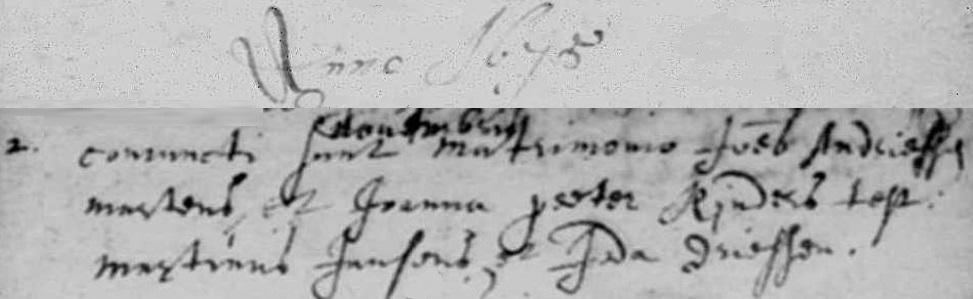 Anno 1675
Novembris
2. coniuncti sunt matrimonio Joēs Andriessen
martens et Joanna peeter Rijnders test.
martinus Jansens et Ida driessen.